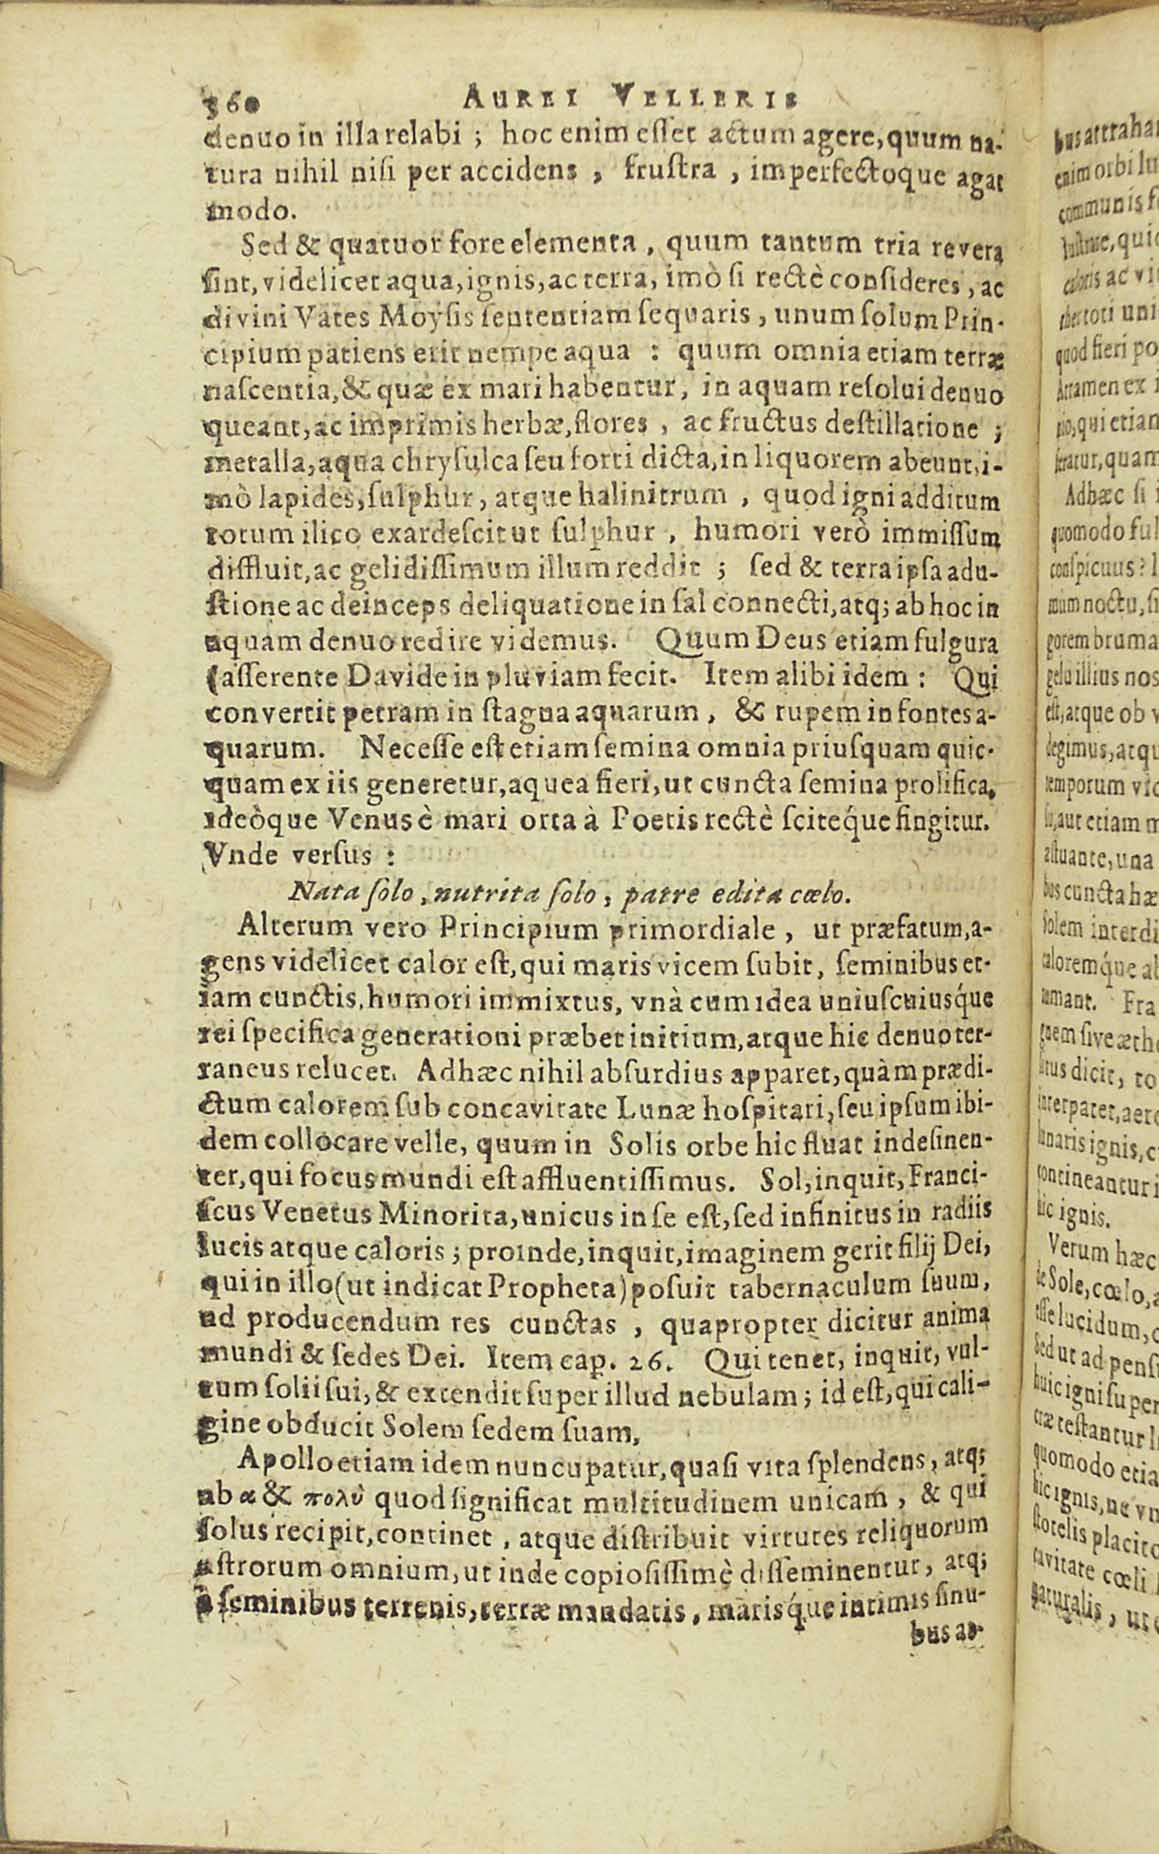 360 AUREI VELLERIS
denuo in illa relabi ; hoc enim esset actum agere, quum na-
tura nihil nisi per accidens , frustra , imperfectoque agat
modo.
Sed & quatuor fore elementa , quum tantum tria revera
sint, videlicet aqua, ignis, ac terra, imò si rectè consideres , ac
divini Vates Moysis sententiam sequaris , unum solum Prin-
cipium patiens erit nempe aqua : quum omnia etiam terræ
nascentia, & quæ ex mari habentur, in aquam resolui denuo
queant, ac imprimis herbæ, flores , ac fructus destillatione ;
metalla, aqua chrysulca seu forti dicta, in liquorem abeunt, i-
mò lapides, sulphur, atque halinitrum , quod igni additum
totum ilico exardescit ut sulphur , humori verò immissum
diffluit, ac gelidissimum illum reddit ; sed & terra ipsa adu-
stione ac deinceps deliquatione in sal connecti, atq; ab hoc in
aquam denuo redire videmus. Quum Deus etiam fulgura
(asserente Davide in pluviam fecit. Item alibi idem : Qui
convertit petram in stagna aquarum , & rupem in fontes a-
quarum. Necesse est etiam semina omnia priusquam quic-
quam ex iis generetur, aquea fieri, ut cuncta semina prolifica,
ideòque Venus è mari orta à Poetis rectè sciteq́ue fingitur.
Vnde versus :
Nata solo , nutrita solo , patre edita cœlo.
Alterum vero Principium primordiale , ut præfatum, a-
gens videlicet calor est, qui maris vicem subit, seminibus et-
iam cunctis, humori immixtus, vnà cum idea uniuscuiusq́ue
rei specifica generationi præbet initium, atque hic denuo ter-
raneus relucet. Adhæc nihil absurdius apparet, quàm prædi-
ctum calorem sub concavitate Lunæ hospitari, seu ipsum ibi-
dem collocare velle, quum in Solis orbe hic fluat indesinen-
ter, qui focus mundi est affluentissimus. Sol, inquit, Franci-
scus Venetus Minorita, unicus in se est, sed infinitus in radiis
lucis atque caloris ; proinde, inquit, imaginem gerit filij Dei,
qui in illo (ut indicat Propheta) posuit tabernaculum suum,
ad producendum res cunctas , quapropter dicitur anima
mundi & sedes Dei. Item cap. 26. Qui tenet, inquit, vul-
tum solii sui, & extendit super illud nebulam ; id est, qui cali-
gine obducit Solem sedem suam,
Apollo etiam idem nuncupatur, quasi vita splendens, atq;
ab α & πολὺ quod significat multitudinem unicam , & qui
solus recipit, continet , atque distribuit virtutes reliquorum
astrorum omnium, ut inde copiosissimè disseminentur, atq;
à seminibus terrenis, terræ mandatis, marisq́ue intimis sinu-
bus at-
bus attraha
enim orbi lu
communis f
lustrare, quic
caloris ac vi
toti uni
quod fieri po
Attamen ex i
pio, qui etian
feratur, quam
Adhæc si i
quomodo ful
conspicuus ? I
mum noctu, si
gorem bruma
gelu illius nos
est, atque ob v
degimus, atqu
temporum vic
su, aut etiam m
æstuante, una
bus cuncta hæ
Solem interdi
caloremq́ue al
Fra
gnem sive æthe
dicit, to
interpatet, aere
lunaris ignis, c
contineantur i
hic ignis.
Verum hæc
de Sole, cœlo, a
esse lucidum, c
Sed ut ad pensi
huic igni super
testantur
quomodo etia
hic ignis, ne vn
stotelis placito
cavitate cœli
naturalis , ut